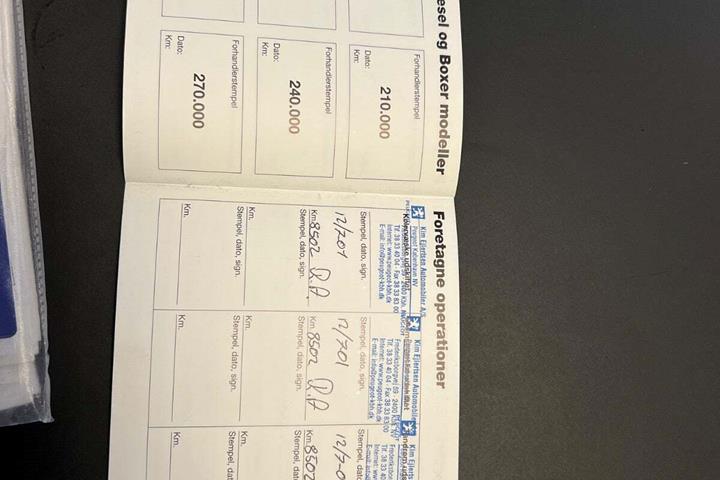 esel og Boxer modeller
Forhandlerstempel
210.000
Dato:
Km:
Forhandlerstempel
240.000
Dato:
Km:
Forhandlerstempel
270.000
Dato:
Km:
Foretagne operationer
Kim Ejlertsen Automobiler A/S
Peugeot København NV
Kølervæske udskiftet
59 - 2400 Kbh. NV
Tlf. 38 33 40 04 - Fax 38 33 83 00
Internet: www.peugeot-kbh.dk
E-mail: info@peugeot-kbh.dk
Stempel, dato, sign.
12/701
Km. 8502
Stempel, dato, sign.
Km.
Stempel, dato, sign.
Km.
Kim Ejlertsen Automobile
Frederiksborgvej 59 - 2400
Tlf. 38 33 40 04 - Fax 38 33 83 00
Internet: www.peugeot-kbh.dk
E-mail: info@peugeot-kbh.dk
Stempel, dato, sign.
12/701
Km. 8502
Stempel, dato, sign.
Km.
Stempel, dato, sign.
Km.
Kim Ejlerts
Frederiksbor
Tlf. 38 33 40
Internet: ww
E-mail: info
Stempel, dato
Km. 8502
Stempel, dato
Km.
Stempel, dat
Km.